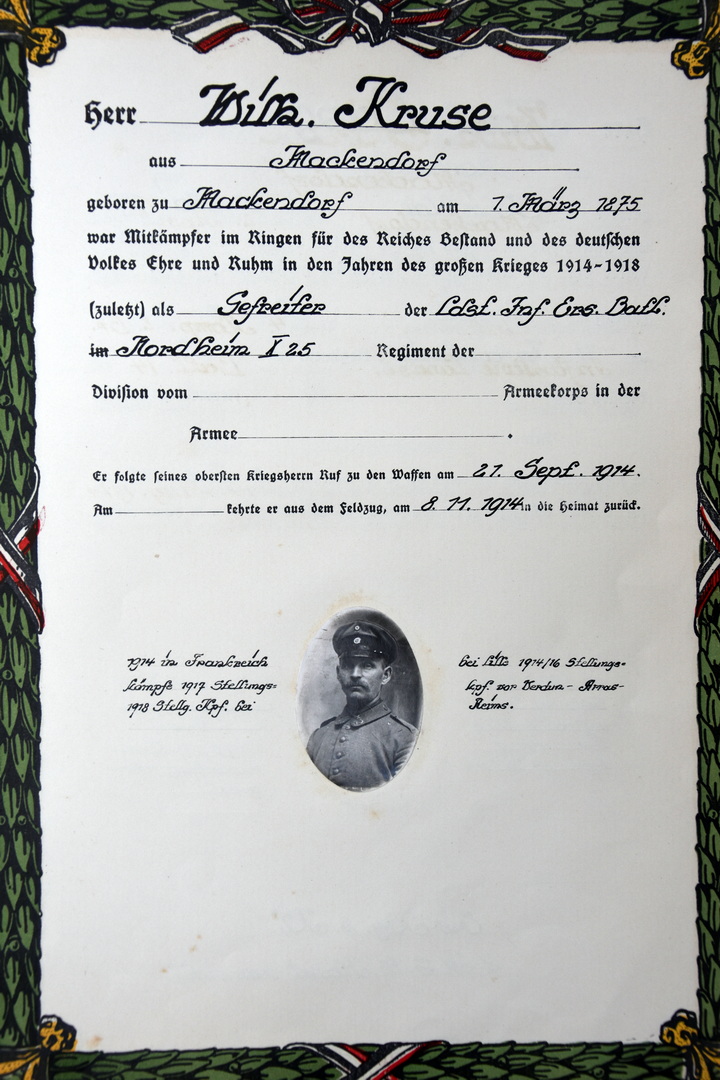 Herr Wilh. Kruse.
aus Mackendorf
geboren zu Mackendorf am 1. März 1875
war Mitkämpfer im Ringen für des Reiches Bestand und des deutschen
Volkes Ehre und Ruhm in den Jahren des großen Krieges 1914-1918
(zuletzt) als Gefreiter der Ldst. Inf. Ers. Batl.
im Nordheim X 25 Regiment der
Division vom Armeekorps in der
Armee .
Er folgte seines obersten Kriegsherrn Ruf zu den Waffen am 21. Sept. 1914.
Am kehrte er aus dem Feldzug, am 8. 11. 1914 in die Heimat zurück.
1914 in Frankreich bei Lille 1914/16 Stellungs=
kämpfe 1917 Stellungs= kpf. vor Verdun - Arras-
1918 Stellg. Kpf. bei Reims.